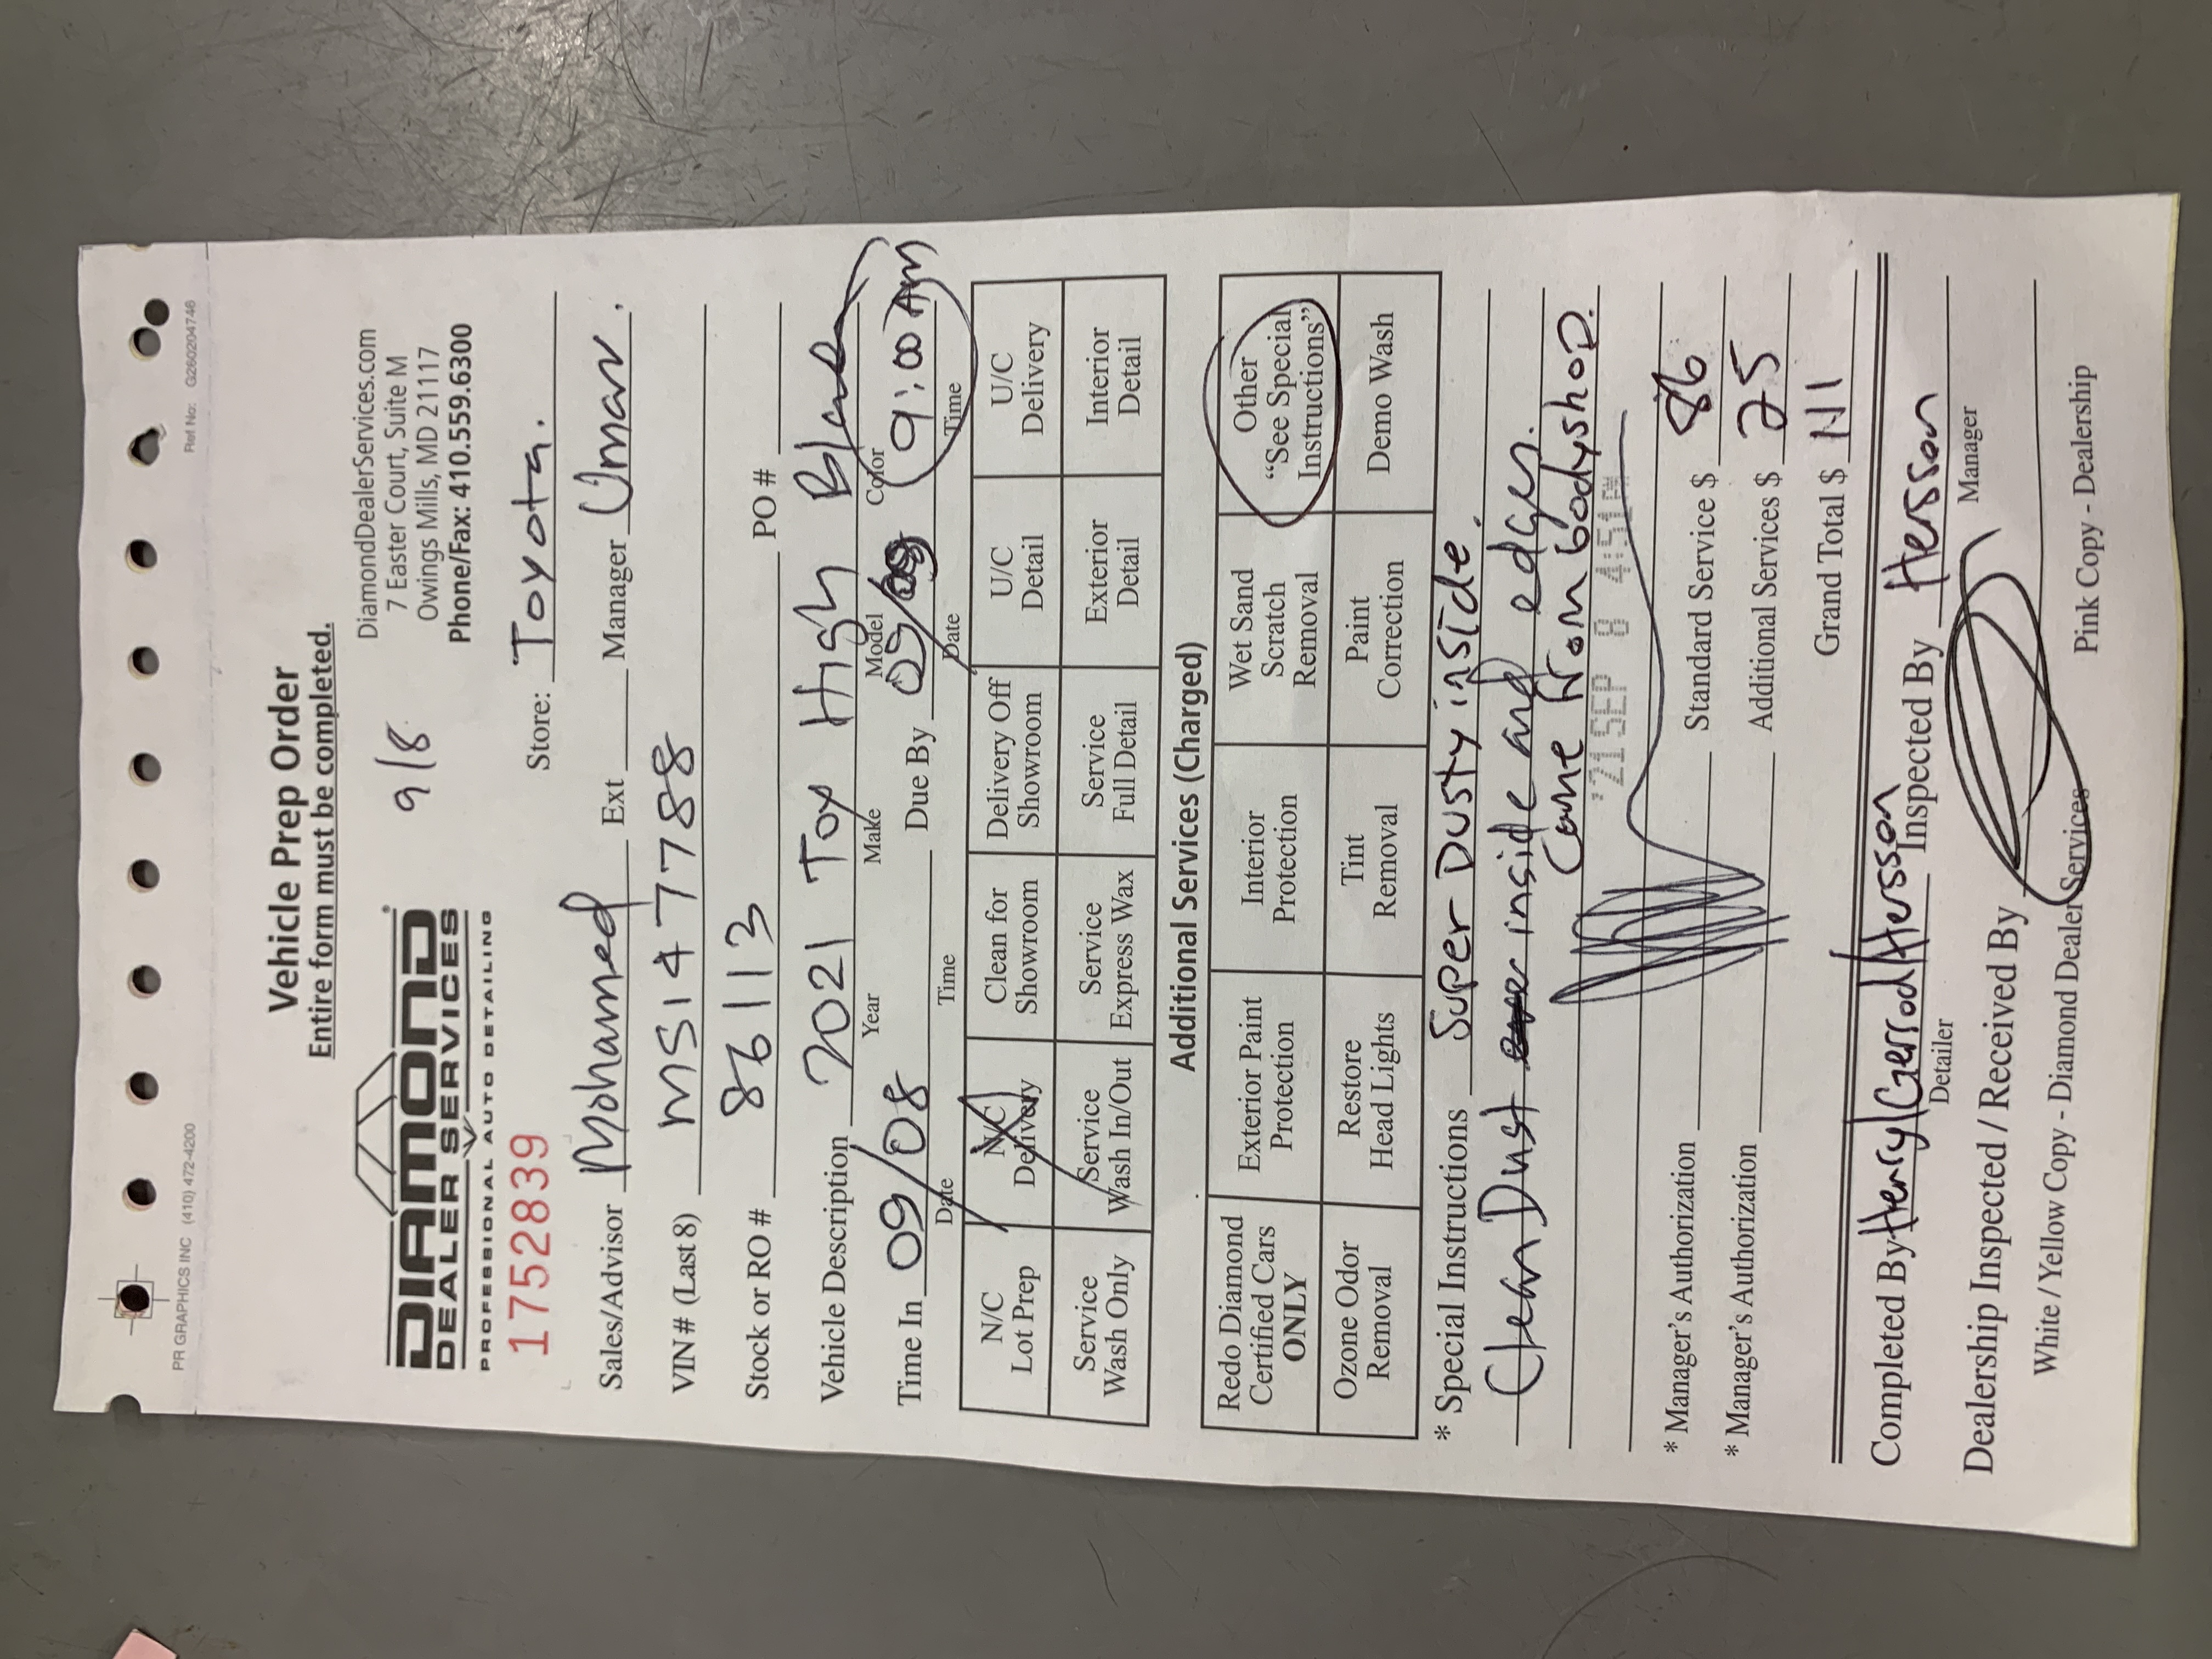 PR GRAPHICS INC (410) 472-4200
Ref No: G260204746
Vehicle Prep Order
Entire form must be completed.
DIAMOND
DEALER SERVICES
PROFESSIONAL AUTO DETAILING
9/8
DiamondDealerServices.com
7 Easter Court, Suite M
Owings Mills, MD 21117
Phone/Fax: 410.559.6300
1752839
Store: Toyota.
Sales/Advisor Mohammed Ext Manager Omar.
VIN # (Last 8) MS147788
Stock or RO # 86113 PO #
Vehicle Description 2021 Toy High Black
Year Make Model Color
Time In 09/08 Due By 09/09 9:00 AM
Date Time Date Time
N/C Lot Prep
N/C Delivery
Clean for Showroom
Delivery Off Showroom
U/C Detail
U/C Delivery
Service Wash Only
Service Wash In/Out
Service Express Wax
Service Full Detail
Exterior Detail
Interior Detail
Additional Services (Charged)
Redo Diamond Certified Cars ONLY
Exterior Paint Protection
Interior Protection
Wet Sand Scratch Removal
Other "See Special Instructions"
Ozone Odor Removal
Restore Head Lights
Tint Removal
Paint Correction
Demo Wash
* Special Instructions Super Dusty inside.
Clean Dust inside and edges.
Came from bodyshop.
'21SEP 8 4:51PM
* Manager's Authorization Standard Service $ 86
* Manager's Authorization Additional Services $ 25
Grand Total $ 111
Completed By Henry/Gerrod/Hersson Inspected By Hersson
Detailer Manager
Dealership Inspected / Received By
White / Yellow Copy - Diamond Dealer Services Pink Copy - Dealership